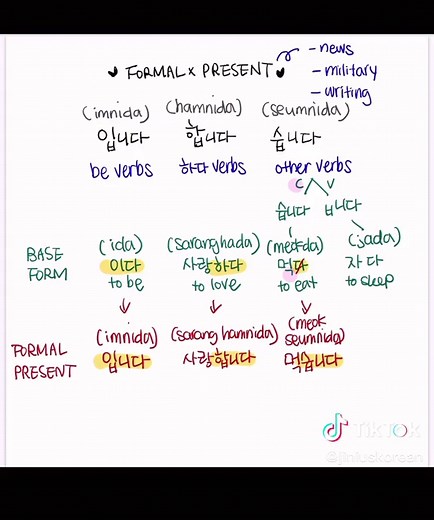 ♥ FORMAL x PRESENT ♥
- news
- military
- writing
(imnida) (hamnida) (seumnida)
입니다 합니다 습니다
be verbs 하다 verbs other verbs
C V
습니다 ㅂ니다
BASE FORM
(ida) (saranghada) (meokda) (jada)
이다 사랑하다 먹다 자다
to be to love to eat to sleep
FORMAL PRESENT
(imnida) (sarang hamnida) (meok seumnida)
입니다 사랑합니다 먹습니다
TikTok
@jiniuskorean